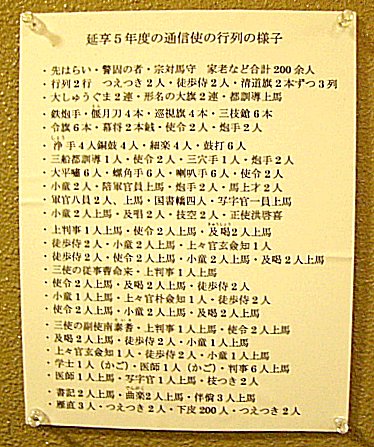 延享5年度の通信使の行列の様子
・先はらい・警固の者・宗対馬守 家老など合計200余人
・行列2行 つえつき2人・徒歩侍2人・清道旗2本ずつ3列
・大しゅうぐま2連・形名の大旗2連・都訓導上馬
・鉄炮手・偃月刀4本・巡視旗4本・三枝鎗6本
・令旗6本・幕将2本鉞・使令2人・炮手2人
・浄手4人銅鼓4人・細楽4人・鼓打6人
・三船都訓導1人・使令2人・三穴手1人・炮手2人
・大平嘯6人・螺角手6人・喇叭手6人・使令2人
・小童2人・陪軍官員上馬・炮手2人・馬上才2人
・軍官八員2人、上馬・国書轎四人・写字官一員上馬
・小童2人上馬・及唱2人・技空2人・正使洪啓喜
・上判事1人上馬・使令2人上馬・及喝2人上馬
・徒歩侍2人・小童2人上馬・上々官玄僉知1人
・徒歩侍2人・使令2人上馬・小童2人上馬・及喝2人上馬
・三使の従事曹命来・上判事1人上馬
・使令2人上馬・及喝2人上馬・徒歩侍2人
・小童1人上馬・上々官朴僉知1人・徒歩侍2人
・使令2人上馬・小童2人上馬・及喝2人上馬
・三使の副使南泰耆・上判事1人上馬・使令2人上馬
・及喝2人上馬・徒歩侍2人・小童1人上馬
・上々官玄僉知1人・徒歩侍2人・小童1人上馬
・学士1人（かご）・医師1人（かご）・判事6人上馬
・医師1人上馬・写字官1人上馬・枝つき2人
・書記2人上馬・曲楽2人上馬・伴倘3人上馬
・雁直3人・つえつき2人・下皮200人・つえつき2人